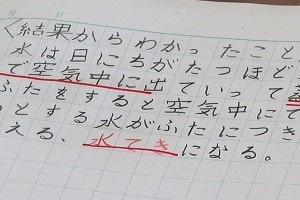 〈結果からわかったこと〉
水は日にちがたつほど
で空気中に出ていって蒸
ふたをすると空気中にで
っとする水がふたにつき
える、水てきになる。